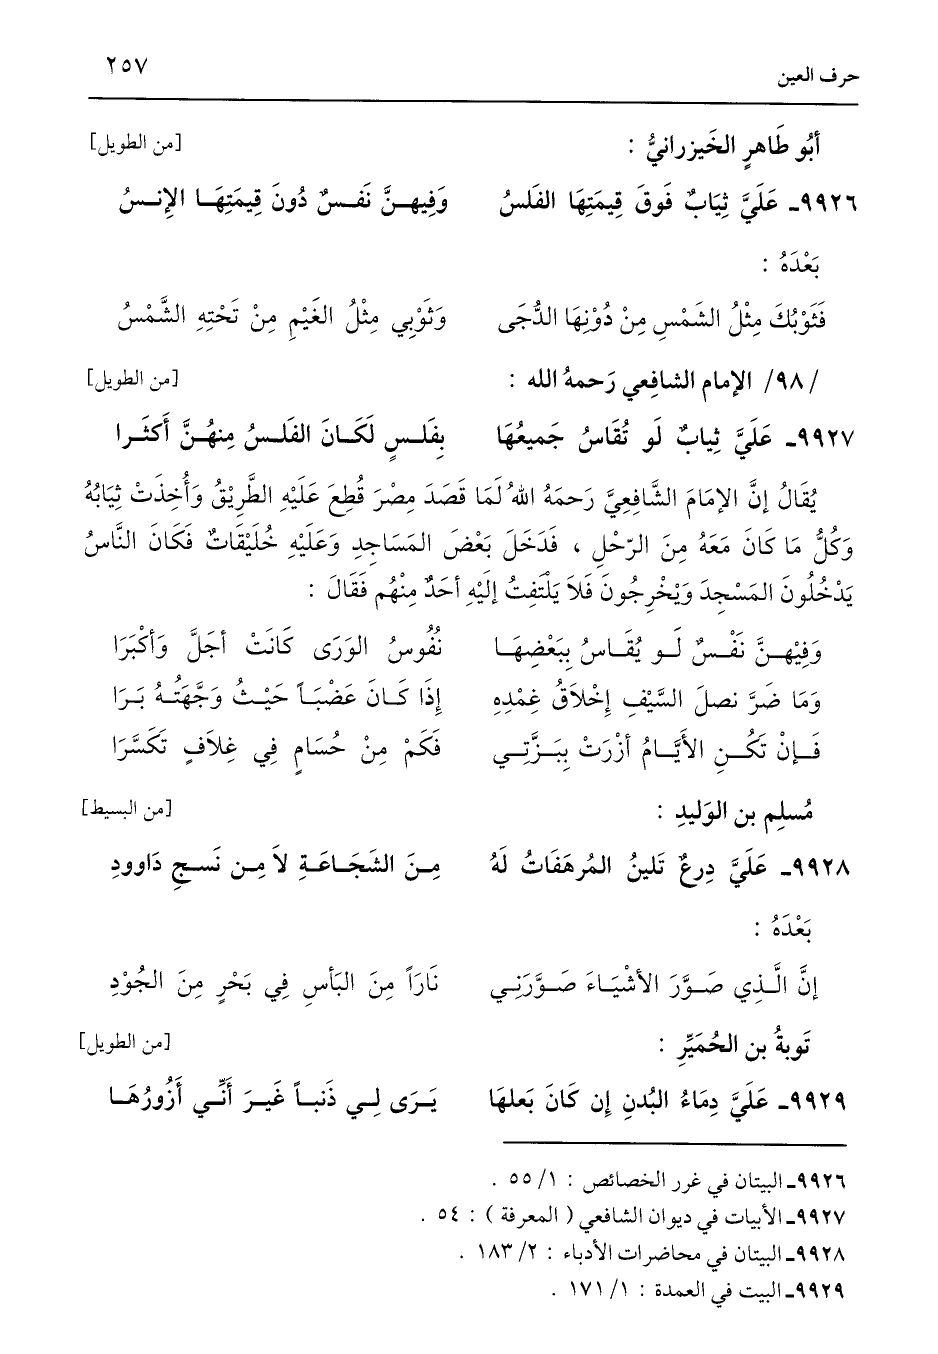 حرف العين ٢٥٧
أبُو طَاهرٍ الخَيزرانيُّ : [من الطويل]
٩٩٢٦ـ عَلَيَّ ثِيَابٌ فَوقَ قِيمَتِهَا الفَلسُ وَفِيهنَّ نَفسٌ دُونَ قِيمَتِهَا الإنسُ
بَعْدَهُ :
فَثَوْبُكَ مِثْلُ الشَّمْسِ مِنْ دُوْنِهَا الدُّجَى وَثَوْبِي مِثْلُ الغَيْمِ مِنْ تَحْتِهِ الشَّمْسُ
/٩٨/ الإمام الشافعِي رَحمهُ الله : [من الطويل]
٩٩٢٧ـ عَلَيَّ ثِيابٌ لَو تُقَاسُ جَمِيعُهَا بِفَلسٍ لَكَانَ الفَلسُ مِنهُنَّ أكثَرا
يُقَالُ إنَّ الإمَامَ الشَّافِعِيَّ رَحمَهُ اللهُ لَمَا قَصَدَ مِصْرَ قُطِعَ عَلَيْهِ الطَّرِيْقُ وَأُخِذَتْ ثِيَابُهُ
وَكُلُّ مَا كَانَ مَعَهُ مِنَ الرّحْلِ ، فَدَخَلَ بَعْضَ المَسَاجِدِ وَعَلَيْهِ خُلَيْقَاتٌ فَكَانَ النَّاسُ
يَدْخُلُونَ المَسْجِدَ وَيَخْرِجُونَ فَلاَ يَلْتَفِتُ إلَيْهِ أحَدٌ مِنْهُم فَقَالَ :
وَفِيْهِنَّ نَفْسٌ لَو يُقَاسُ بِبَعْضِهَا نُفُوسُ الوَرَى كَانَتْ أجَلَّ وَأكْبَرَا
وَمَا ضَرَّ نصلَ السَّيْفِ إخْلاَقُ غِمْدِهِ إذَا كَانَ عَضْبَاً حَيْثُ وَجَّهَتُهُ بَرَا
فَإنْ تَكُنِ الأيَّامُ أزْرَتْ بِبَزَّتِي فَكَمْ مِنْ حُسَامٍ فِي غِلاَفٍ تَكَسَّرَا
مُسلِم بن الوَليدِ : [من البسيط]
٩٩٢٨ـ عَلَيَّ دِرعٌ تَلينُ المُرهَفَاتُ لَهُ مِنَ الشَّجَاعَةِ لاَ مِن نَسجِ دَاوودِ
بَعْدَهُ :
إنَّ الَّذِي صَوَّرَ الأشْيَاءَ صَوَّرَنِي نَارَاً مِنَ البَأسِ فِي بَحْرٍ مِنَ الجُوْدِ
تَوبةُ بن الحُمَيِّرِ : [من الطويل]
٩٩٢٩ـ عَلَيَّ دِمَاءُ البُدنِ إن كَانَ بَعلهَا يَرَى لِي ذَنباً غَيرَ أنَّنِي أَزُورُهَا
٩٩٢٦ـ البيتان في غرر الخصائص : ١/ ٥٥ .
٩٩٢٧ـ الأبيات في ديوان الشافعي ( المعرفة ) : ٥٤ .
٩٩٢٨ـ البيتان في محاضرات الأدباء : ٢/ ١٨٣ .
٩٩٢٩ـ البيت في العمدة : ١/ ١٧١ .